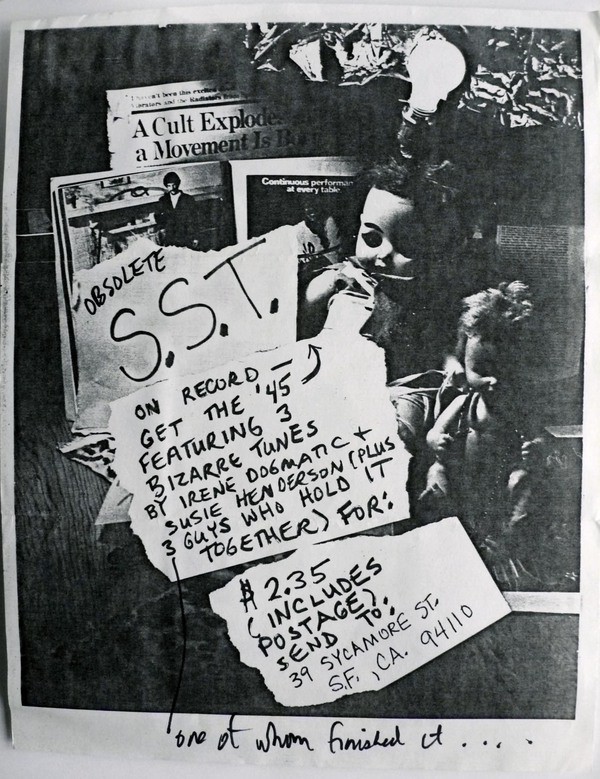 A Cult Explodes
a Movement Is B
Continuous performan
at every table
OBSOLETE
S.S.T.
ON RECORD —
GET THE '45
FEATURING 3
BIZARRE TUNES
BY IRENE DOGMATIC +
SUSIE HENDERSON (PLUS
3 GUYS WHO HOLD IT
TOGETHER) FOR:
$2.35
(INCLUDES
POSTAGE)
SEND TO:
39 SYCAMORE ST.
S.F., CA. 94110
one of whom finished it . . . .